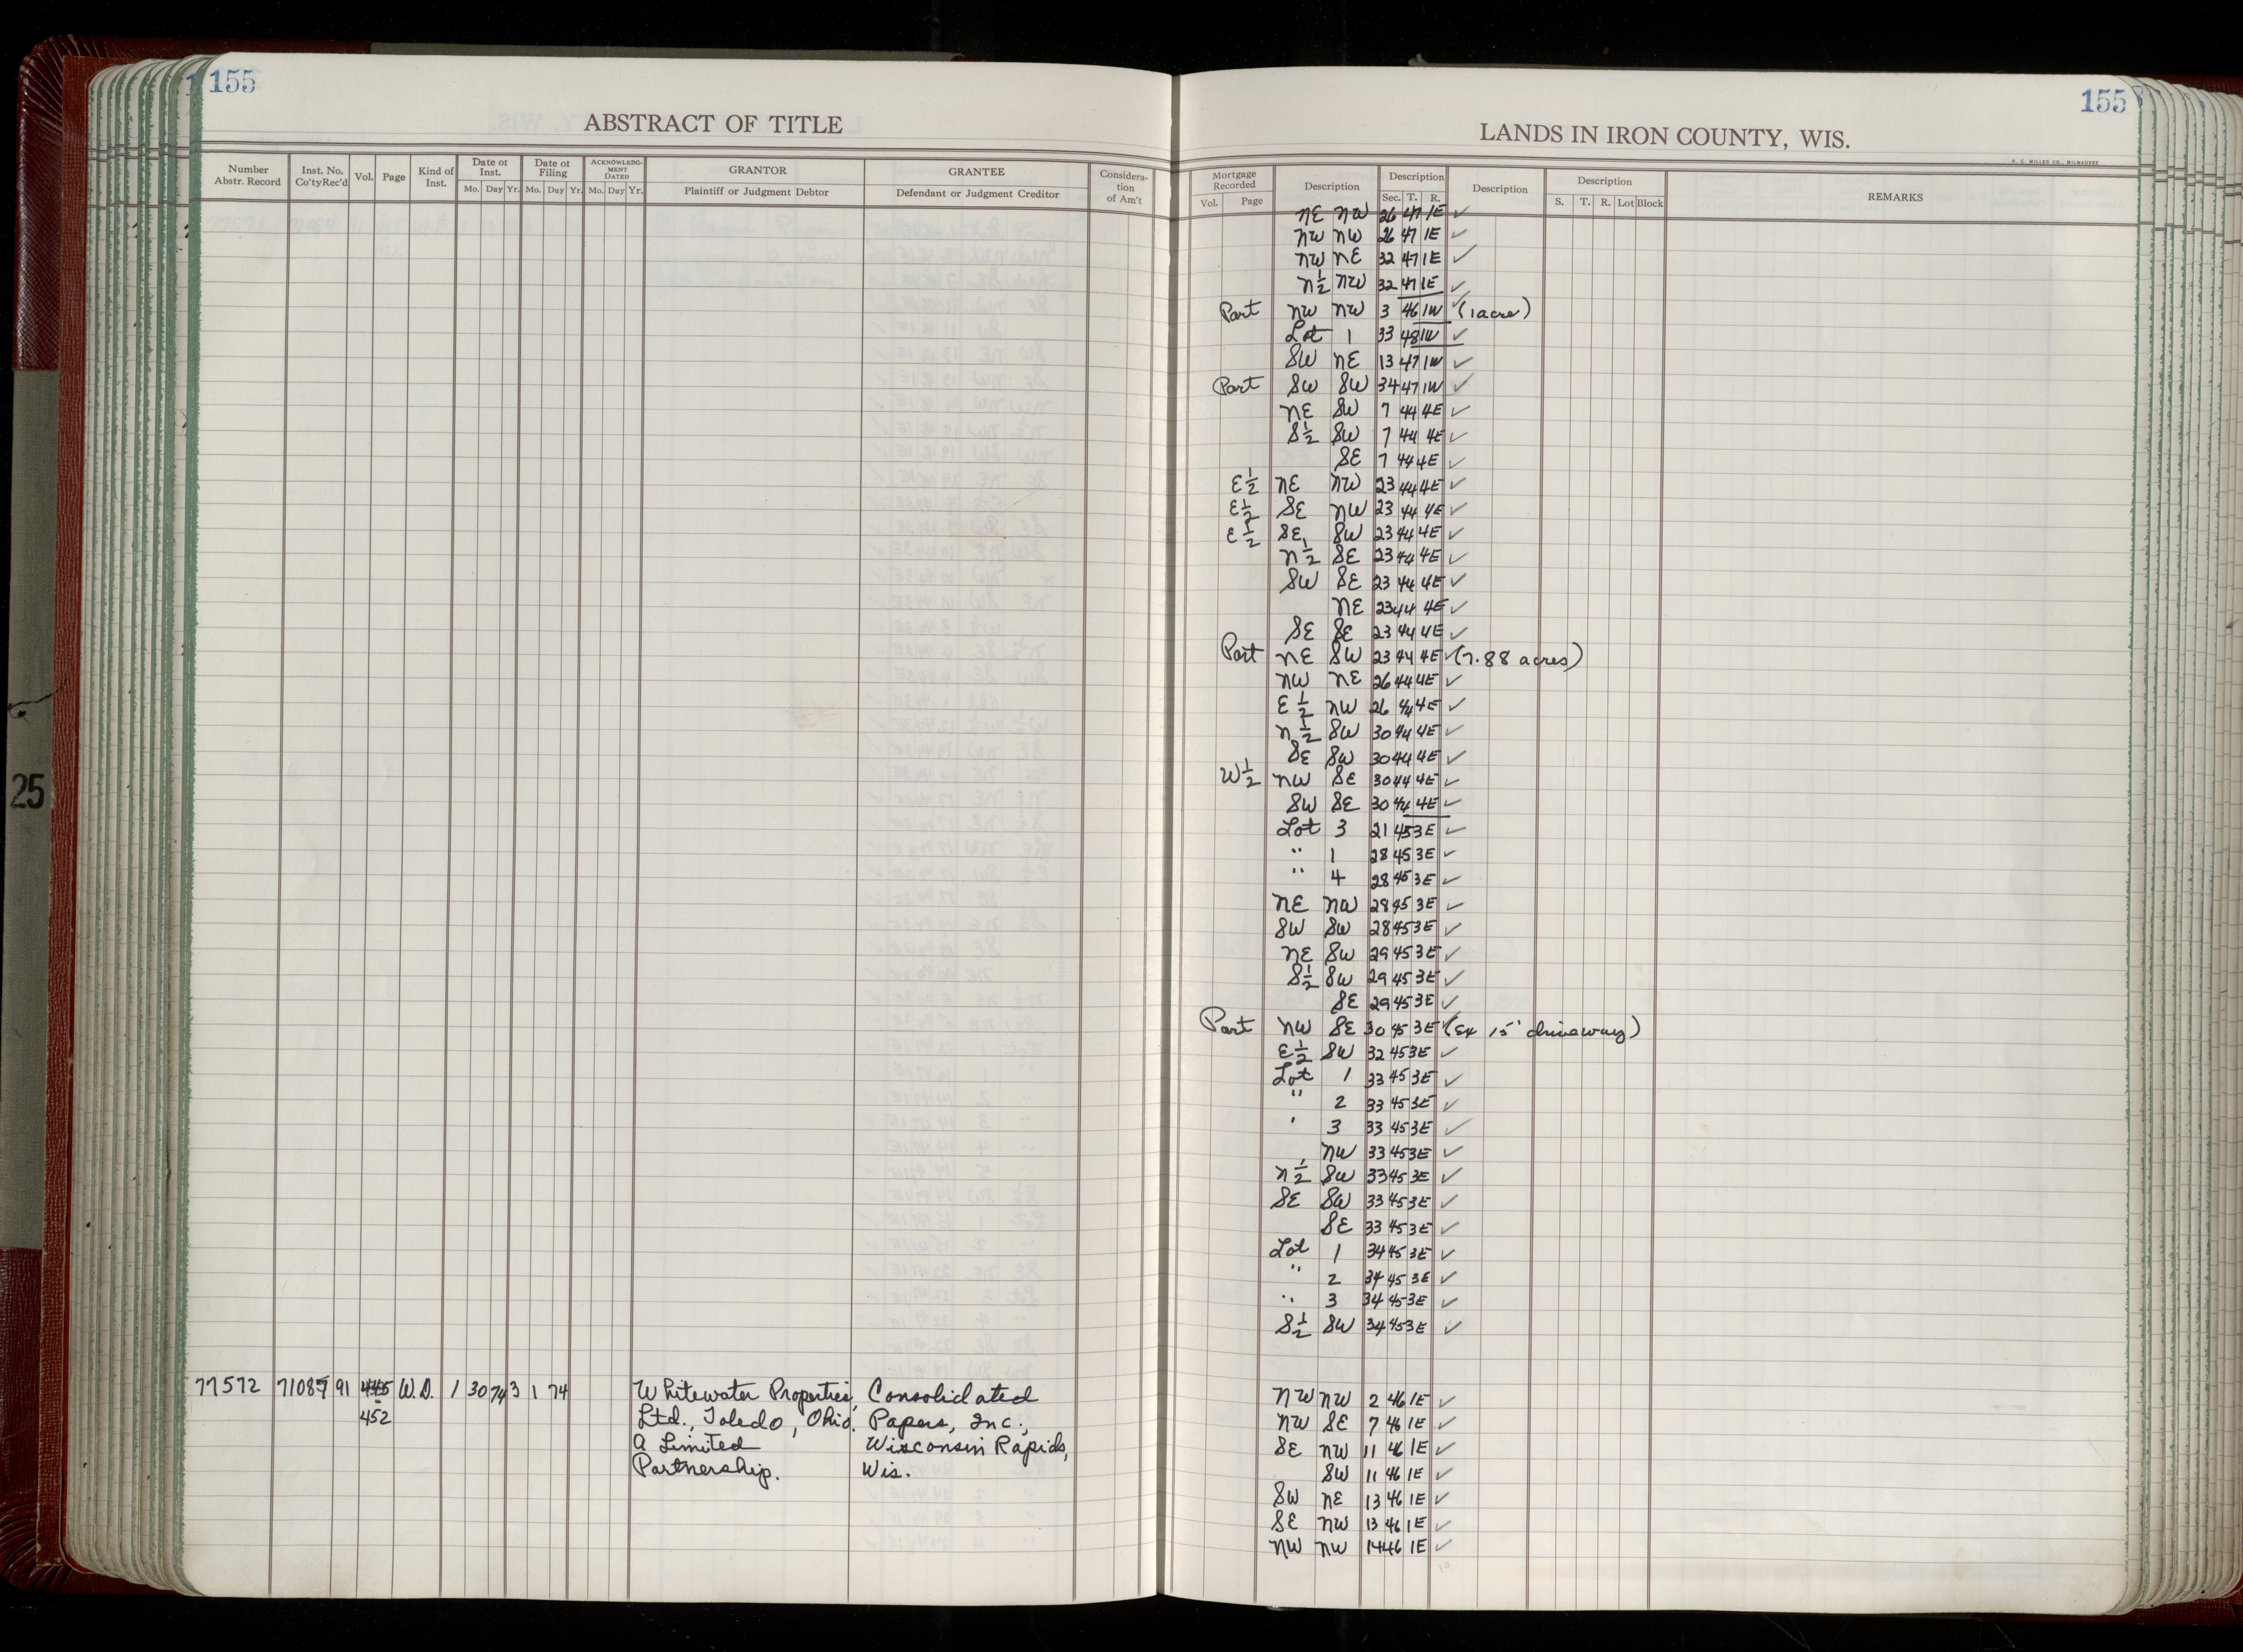 155
ABSTRACT OF TITLE
Number Abstr. Record
Inst. No. Co'ty Rec'd
Vol.
Page
Kind of Inst.
Date of Inst.
Mo. Day Yr.
Date of Filing
Mo. Day Yr.
ACKNOWLEDG-MENT DATED
Mo. Day Yr.
GRANTOR
Plaintiff or Judgment Debtor
GRANTEE
Defendant or Judgment Creditor
Considera-tion of Am't
77572 71087 91 445 W.D. 1 30 74 3 1 74 Whitewater Properties, Consolidated
452 Ltd., Toledo, Ohio. Papers, Inc.,
A Limited Wisconsin Rapids,
Partnership. Wis.
25
155
LANDS IN IRON COUNTY, WIS.
H. C. MILLER CO., MILWAUKEE
Mortgage Recorded
Vol. Page
Description
Description
Sec. T. R.
Description
Description
S. T. R. Lot Block
REMARKS
NE NW 26 47 1E ✓
NW NW 26 47 1E ✓
NW NE 32 47 1E ✓
N½ NW 32 47 1E ✓
Part NW NW 3 46 1W ✓ (1 acre)
Lot 1 33 48 1W ✓
SW NE 13 47 1W ✓
Part SW SW 34 47 1W ✓
NE SW 7 44 4E ✓
S½ SW 7 44 4E ✓
SE 7 44 4E ✓
E½ NE NW 23 44 4E ✓
E½ SE NW 23 44 4E ✓
E½ SE SW 23 44 4E ✓
N½ SE 23 44 4E ✓
SW SE 23 44 4E ✓
NE 23 44 4E ✓
SE SE 23 44 4E ✓
Part NE SW 23 44 4E ✓ (7.88 acres)
NW NE 26 44 4E ✓
E½ NW 26 44 4E ✓
N½ SW 30 44 4E ✓
SE SW 30 44 4E ✓
W½ NW SE 30 44 4E ✓
SW SE 30 44 4E ✓
Lot 3 21 45 3E ✓
" 1 28 45 3E ✓
" 4 28 45 3E ✓
NE NW 28 45 3E ✓
SW SW 28 45 3E ✓
NE SW 29 45 3E ✓
S½ SW 29 45 3E ✓
SE 29 45 3E ✓
Part NW SE 30 45 3E ✓ (Ex 15' driveway)
E½ SW 32 45 3E ✓
Lot 1 33 45 3E ✓
" 2 33 45 3E ✓
' 3 33 45 3E ✓
NW 33 45 3E ✓
N½ SW 33 45 3E ✓
SE SW 33 45 3E ✓
SE 33 45 3E ✓
Lot 1 34 45 3E ✓
" 2 34 45 3E ✓
" 3 34 45 3E ✓
S½ SW 34 45 3E ✓
NW NW 2 46 1E ✓
NW SE 7 46 1E ✓
SE NW 11 46 1E ✓
SW 11 46 1E ✓
SW NE 13 46 1E ✓
SE NW 13 46 1E ✓
NW NW 14 46 1E ✓